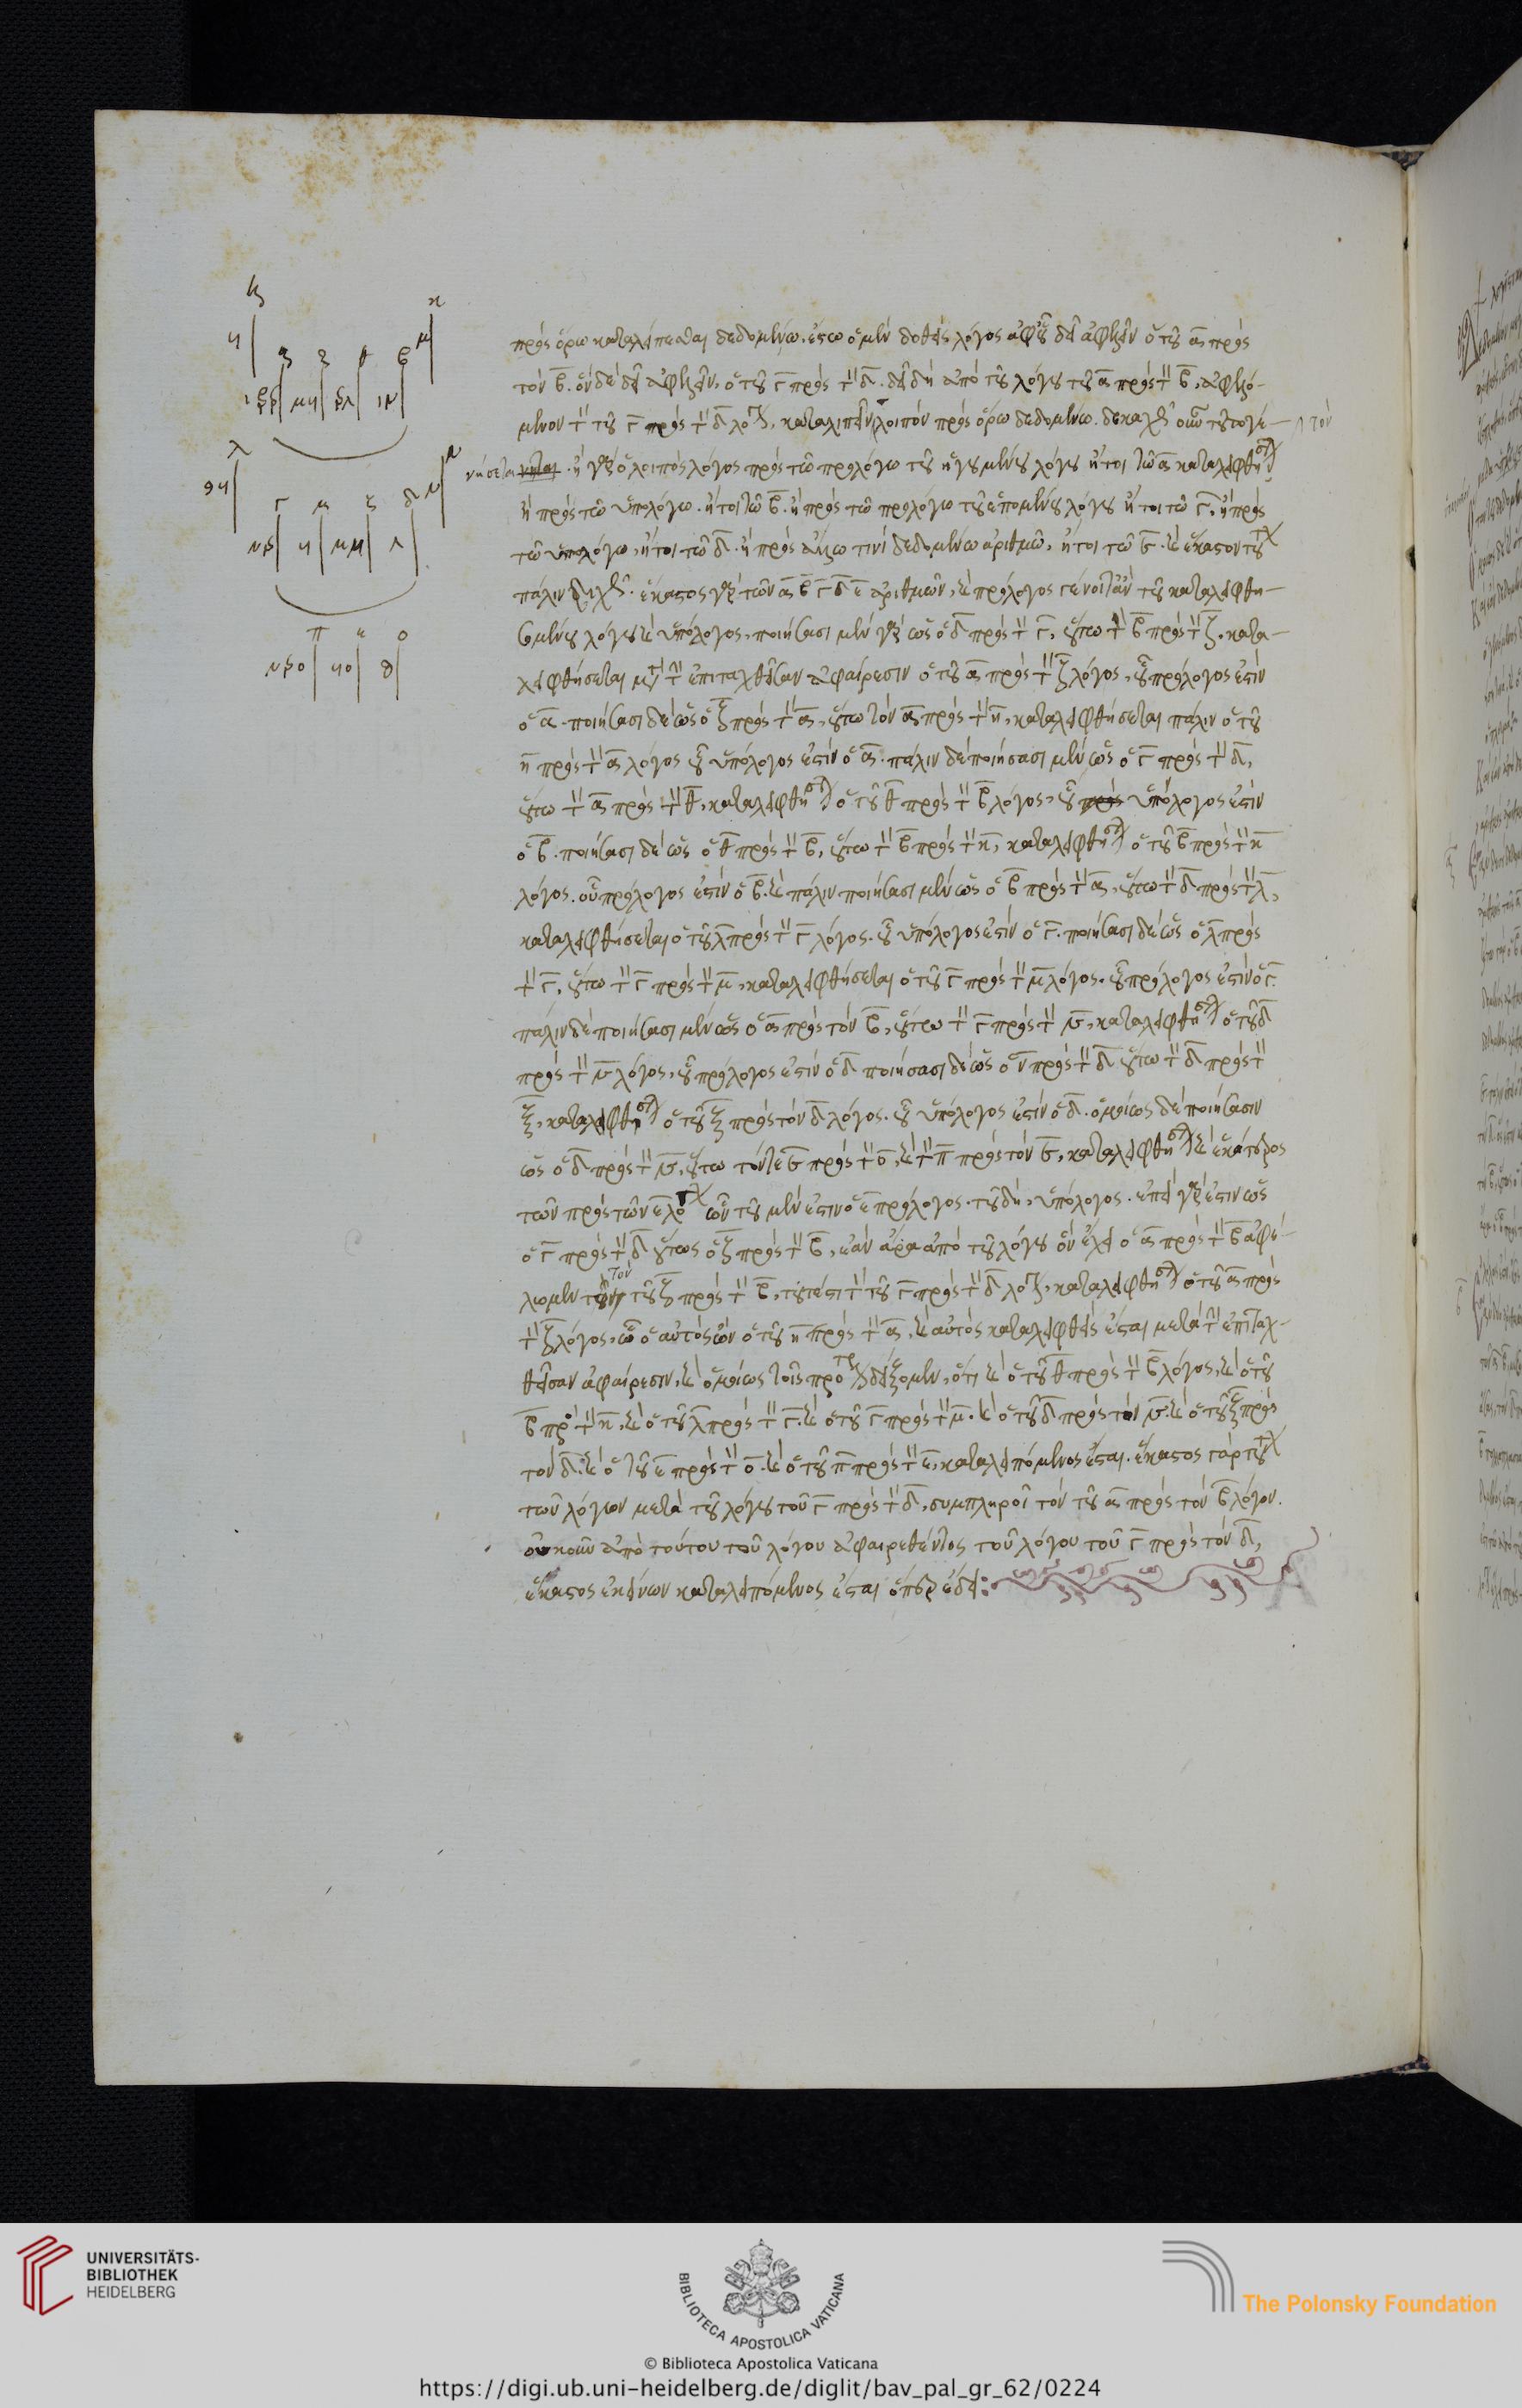 πρὸς ὅρῳ καταλείπεσθαι δεδομένῳ. ἔστω ὁ μὲν δοθεὶς λόγος ἀφ' οὗ δεῖ ἀφελεῖν ὁ τοῦ α πρὸς
τὸν β. ὃν δὲ δεῖ ἀφελεῖν, ὁ τοῦ γ πρὸς τὸν δ. δεῖ δὴ ἀπὸ τοῦ λόγου τοῦ α πρὸς τὸν β, ἀφελό-
μενον τὸν τοῦ γ πρὸς τὸν δ λόγον, καταλιπεῖν λοιπὸν πρὸς ὅρῳ δεδομένῳ. τὸν
νήσεται. ἢ γὰρ ὁ λοιπὸς λόγος πρὸς τῷ προλόγῳ τοῦ ἡγουμένου λόγου ἤτοι τῷ α καταλειφθήσεται
ἢ πρὸς τῷ ὑπολόγῳ. ἤτοι τῷ β. ἢ πρὸς τῷ προλόγῳ τοῦ ἑπομένου λόγου ἤτοι τῷ γ, ἢ πρὸς
τῷ ὑπολόγῳ, ἤτοι τῷ δ. ἢ πρὸς ἄλλῳ τινὶ δεδομένῳ ἀριθμῷ, ἤτοι τῷ ε. καὶ ἕκαστον τούτων
πάλιν διχῶς. ἕκαστος γὰρ τῶν α β γ δ ε ἀριθμῶν, καὶ πρόλογος γένοιτ' ἂν τοῦ καταλειφθη-
σομένου λόγου καὶ ὑπόλογος. ποιήσασι μὲν γὰρ ὡς ὁ δ πρὸς τὸν γ, οὕτω τὸν β πρὸς τὸν ζ, κατα-
λειφθήσεται μετὰ τὴν ἐπιταχθεῖσαν ἀφαίρεσιν ὁ τοῦ α πρὸς τὸν ζ λόγος, οὗ πρόλογός ἐστιν
ὁ α. ποιήσασι δὲ ὡς ὁ ζ πρὸς τὸν α, οὕτω τὸν α πρὸς τὸν η, καταλειφθήσεται πάλιν ὁ τοῦ
η πρὸς τὸν α λόγος οὗ ὑπόλογός ἐστιν ὁ α. πάλιν δὲ ποιήσασι μὲν ὡς ὁ γ πρὸς τὸν δ,
οὕτω τὸν α πρὸς τὸν θ, καταλειφθήσεται ὁ τοῦ θ πρὸς τὸν β λόγος, οὗ ὑπόλογός ἐστιν
ὁ β. ποιήσασι δὲ ὡς ὁ θ πρὸς τὸν β, οὕτω τὸν β πρὸς τὸν κ, καταλειφθήσεται ὁ τοῦ β πρὸς τὸν κ
λόγος. οὗ πρόλογός ἐστιν ὁ β. καὶ πάλιν ποιήσασι μὲν ὡς ὁ β πρὸς τὸν α, οὕτω τὸν δ πρὸς τὸν λ,
καταλειφθήσεται ὁ τοῦ λ πρὸς τὸν γ λόγος. οὗ ὑπόλογός ἐστιν ὁ γ. ποιήσασι δὲ ὡς ὁ λ πρὸς
τὸν γ, οὕτω τὸν γ πρὸς τὸν μ, καταλειφθήσεται ὁ τοῦ γ πρὸς τὸν μ λόγος. οὗ πρόλογός ἐστιν ὁ γ.
πάλιν δὲ ποιήσασι μὲν ὡς ὁ α πρὸς τὸν β, οὕτω τὸν γ πρὸς τὸν ν, καταλειφθήσεται ὁ τοῦ δ
πρὸς τὸν ν λόγος, οὗ πρόλογός ἐστιν ὁ δ ποιήσασι δὲ ὡς ὁ ν πρὸς τὸν δ οὕτω τὸν δ πρὸς τὸν
ξ, καταλειφθήσεται ὁ τοῦ ξ πρὸς τὸν δ λόγος. οὗ ὑπόλογός ἐστιν ὁ δ. ὁμοίως δὲ ποιήσασιν
ὡς ὁ δ πρὸς τὸν ν, οὕτω τόν τε ε πρὸς τὸν ο, καὶ τὸν π πρὸς τὸν ε, καταλειφθήσεται καὶ ἑκάτερος
τῶν πρὸς τῶν ε λόγων ὧν τοῦ μέν ἐστιν ὁ ε πρόλογος. τοῦ δὴ, ὑπόλογος. ἐπεὶ γάρ ἐστιν ὡς
ὁ γ πρὸς τὸν δ οὕτως ὁ ζ πρὸς τὸν β, ἐὰν ἄρα ἀπὸ τοῦ λόγου ὃν ἔχει ὁ α πρὸς τὸν β ἀφέ-
λωμεν τὸν τοῦ ζ πρὸς τὸν β, τουτέστι τὸν τοῦ γ πρὸς τὸν δ λόγον, καταλειφθήσεται ὁ τοῦ α πρὸς
τὸν ζ λόγος, ᾧ ὁ αὐτὸς ὢν ὁ τοῦ η πρὸς τὸν α, καὶ αὐτὸς καταλειφθεὶς ἔσται μετὰ τὴν ἐπιταχ-
θεῖσαν ἀφαίρεσιν. καὶ ὁμοίως τοῖς πρότερον δείξομεν, ὅτι καὶ ὁ τοῦ θ πρὸς τὸν β λόγος, καὶ ὁ τοῦ
β πρὸς τὸν κ, καὶ ὁ τοῦ λ πρὸς τὸν γ. καὶ ὁ τοῦ γ πρὸς τὸν μ. καὶ ὁ τοῦ δ πρὸς τὸν ν. καὶ ὁ τοῦ ξ πρὸς
τὸν δ. καὶ ὁ τοῦ ε πρὸς τὸν ο. καὶ ὁ τοῦ π πρὸς τὸν ε, καταλειπόμενος ἔσται. ἕκαστος γὰρ τούτων
τῶν λόγων μετὰ τοῦ λόγου τοῦ γ πρὸς τὸν δ, συμπληροῖ τὸν τοῦ α πρὸς τὸν β λόγον.
οὐκοῦν ἀπὸ τούτου τοῦ λόγου ἀφαιρεθέντος τοῦ λόγου τοῦ γ πρὸς τὸν δ,
ἕκαστος ἐκείνων καταλειπόμενος ἔσται ὅπερ ἔδει:
UNIVERSITÄTS-
BIBLIOTHEK
HEIDELBERG
BIBLIOTECA APOSTOLICA VATICANA
The Polonsky Foundation
© Biblioteca Apostolica Vaticana
https://digi.ub.uni-heidelberg.de/diglit/bav_pal_gr_62/0224